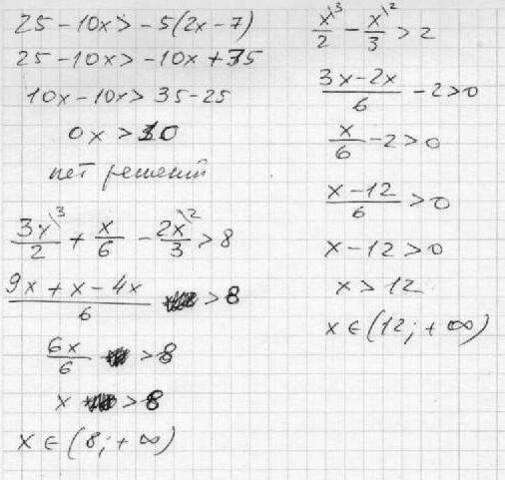 25 - 10x > -5(2x - 7)
25 - 10x > -10x + 35
10x - 10x > 35 - 25
0x > 10
нет решений
3x\3/2 + x/6 - 2x\2/3 > 8
9x + x - 4x/6 > 8
6x/6 > 8
x > 8
x ∈ (8; +∞)
x\3/2 - x\2/3 > 2
3x - 2x/6 - 2 > 0
x/6 - 2 > 0
x - 12/6 > 0
x - 12 > 0
x > 12
x ∈ (12; +∞)